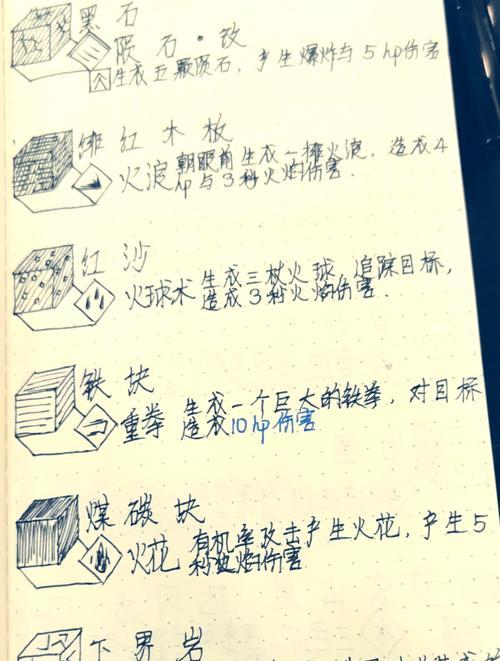 黑石
陨石·改
生成五颗陨石，产生爆炸与5hp伤害
绯红木板
火浪 朝眼前生成一摊火浪，造成4
hp与3秒火焰伤害.
红沙
火球术 生成三枚火球，追踪目标，
造成3秒火焰伤害.
铁块
重拳 生成一个巨大的铁拳，对目标
造成10hp伤害
煤碳块
火花 有机率攻击产生火花，产生5
秒 焰伤害
下界岩